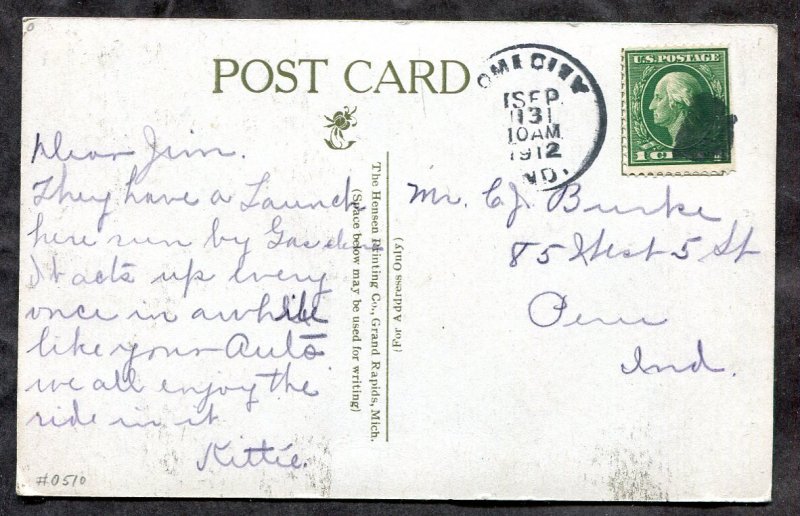 POST CARD
OME CITY
SEP
13
10AM
1912
IND.
U.S. POSTAGE
1 C
Dear Jim.
They have a Launch
here run by Gas
It acts up every
once in awhile
like your Auto
we all enjoy the
ride in it
Kittie.
#0510
The Hensen Printing Co., Grand Rapids, Mich.
(Space below may be used for writing)
(For Address Only)
Mr. C.J. Burke
85 West 5 St
Peru
Ind.